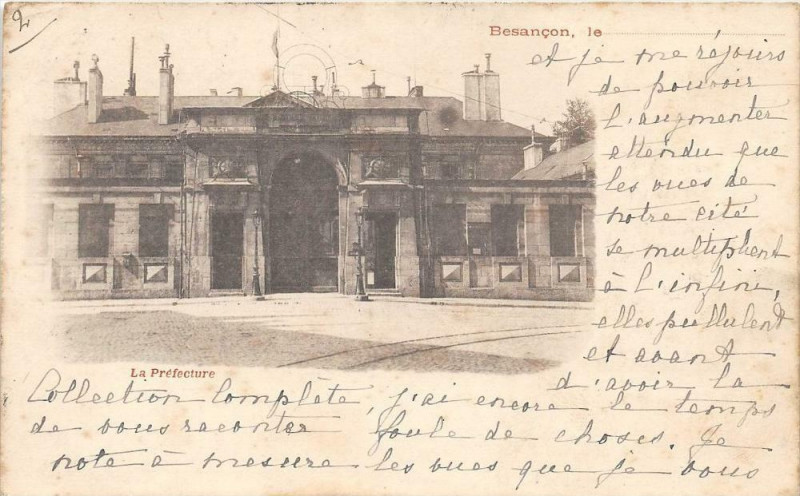 2
Besançon, le
et je me réjouis
de pouvoir
l'augmenter
attendu que
les vues de
notre cité
se multiplient
à l'infini,
elles pullulent
et avant
d'avoir la
La Préfecture
Collection Complète, j'ai encore le temps
de vous raconter foule de choses. Je
note à mesure les vues que je vous